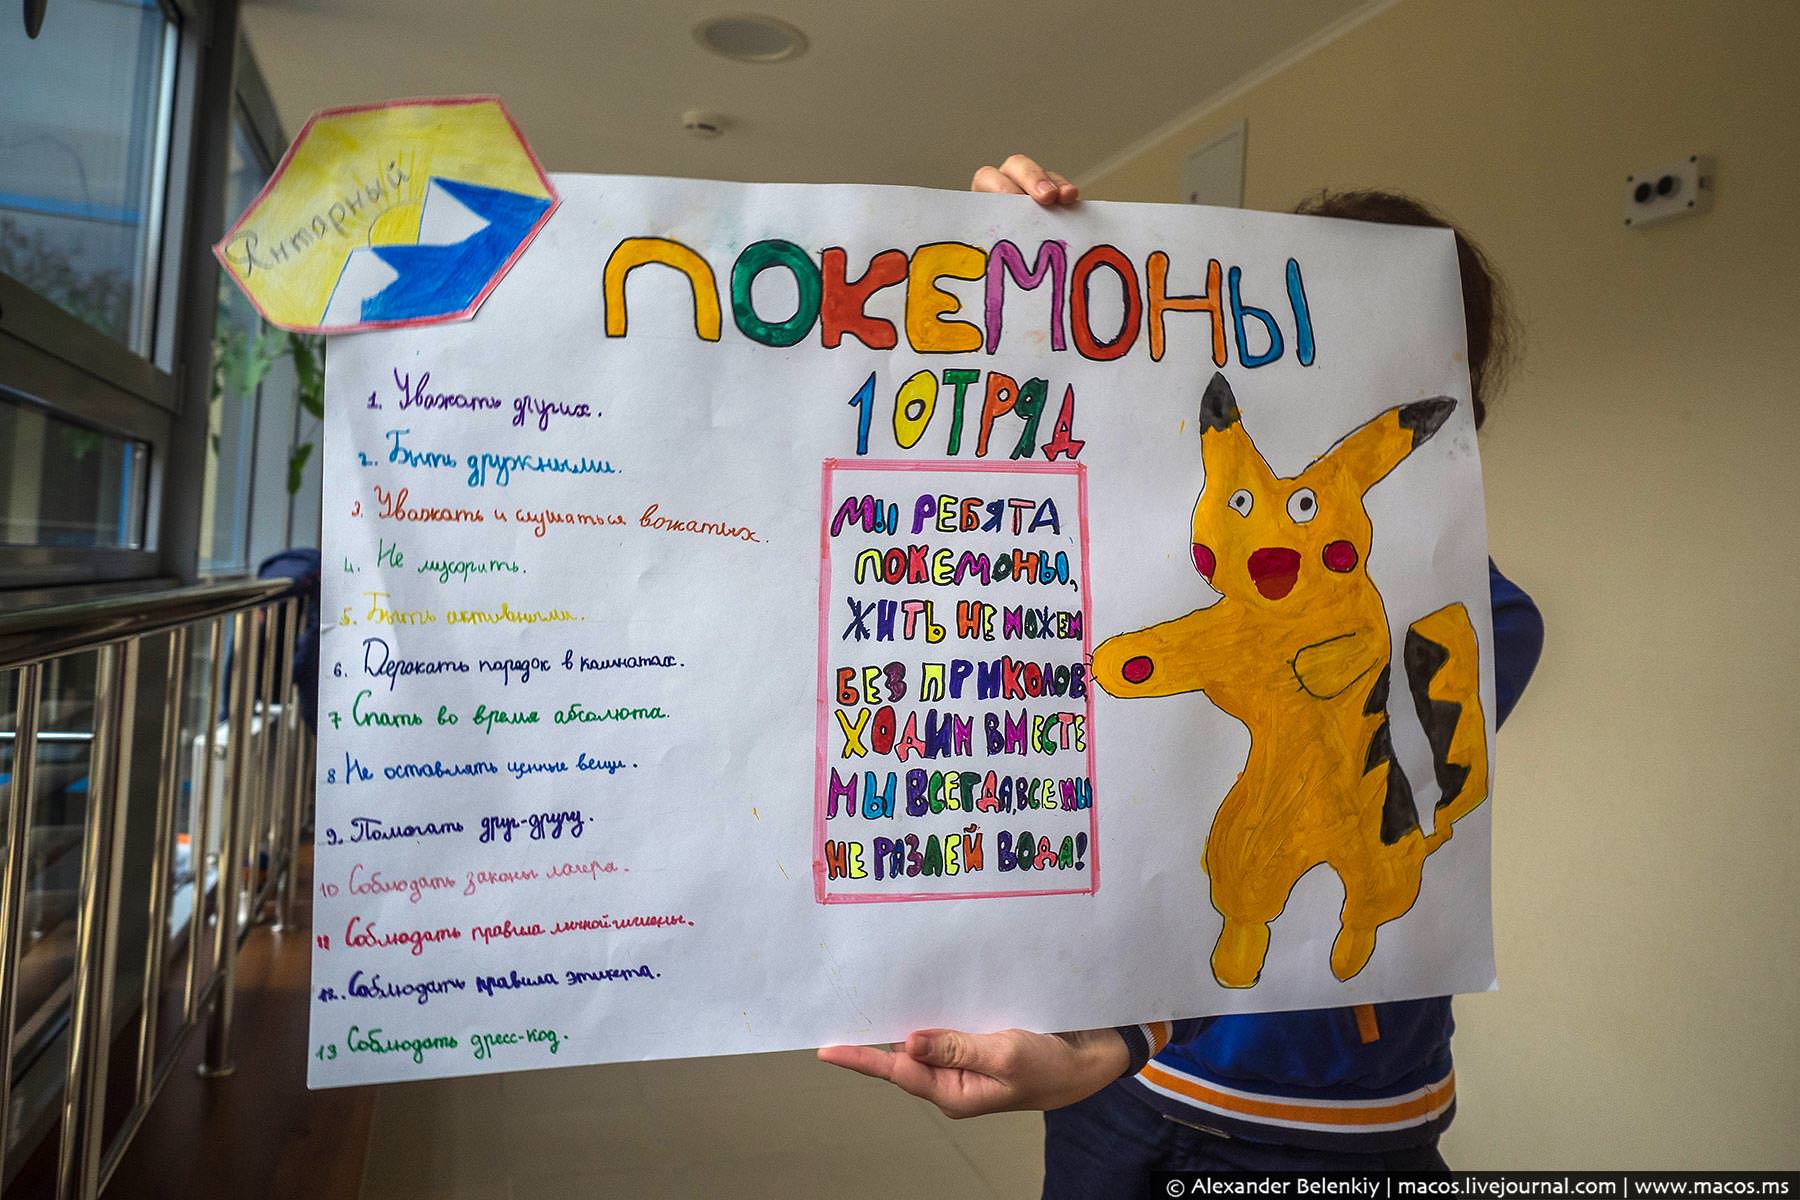 Янтарный
ПОКЕМОНЫ
1 ОТРЯД
1. Уважать других.
2. Быть дружными.
3. Уважать и слушаться вожатых.
4. Не мусорить.
5. Быть активными.
6. Держать порядок в комнатах.
7 Спать во время абсолюта.
8 Не оставлять ценные вещи.
9. Помогать друг-другу.
10 Соблюдать законы лагеря.
11 Соблюдать правила личной гигиены.
12. Соблюдать правила этикета.
13 Соблюдать дресс-код.
МЫ РЕБЯТА
ПОКЕМОНЫ,
ЖИТЬ НЕ МОЖЕМ
БЕЗ ПРИКОЛОВ,
ХОДИМ ВМЕСТЕ
МЫ ВСЕГДА, ВСЕ МЫ
НЕ РАЗЛЕЙ ВОДА!
© Alexander Belenkiy | macos.livejournal.com | www.macos.ms